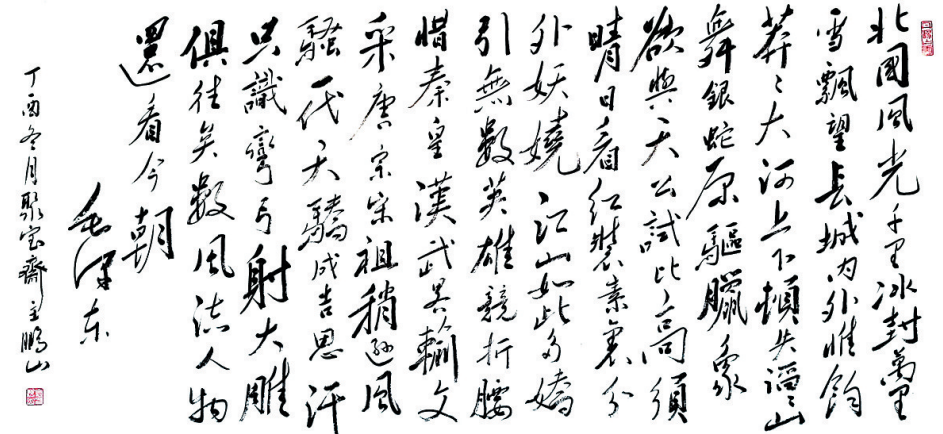 北國風光千里冰封萬里
雪飄望長城内外惟餘
莽〻大河上下頓失滔〻山
舞銀蛇原驅臘象
欲與天公試比高須
晴日看紅裝素裹分
外妖嬈江山如此多嬌
引無數英雄競折腰
惜秦皇漢武畧輸文
采唐宗宋祖稍遜風
騷一代天驕成吉思汗
只識彎弓射大雕
俱往矣數風流人物
還看今朝
毛澤东
丁酉冬月聚宝齋主鵬山